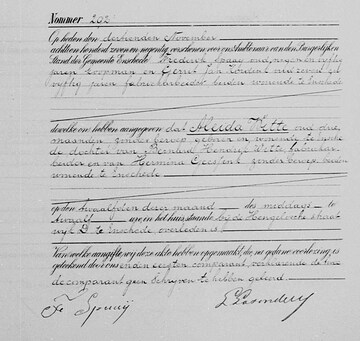 Nummer 202
Op heden den dertienden November
achttienhonderd zeven en negentig verschenen voor ons Ambtenaar van den Burgerlijken
Stand der Gemeente Enschede Frederik Spaay oud negen en vijftig
jaren koopman en Gerrit Jan oud
vijftig jaren fabriekarbeider beiden wonende te Enschede
dewelke ons hebben aangegeven dat Aleida Wette oud drie
maanden zonder beroep geboren en wonende te Ensche
de dochter van Berend Hendrik Wette fabriekar
beider en van Hermina Geesink zonder beroep beiden
wonende te Enschede
op den twaalfden dezer maand des middags te
twaalf ure in het huis staande bij de Hengelosche straat
wijk D te Enschede overleden is
Van welke aangifte wij deze akte hebben opgemaakt, die na gedane voorlezing is
geteekend door ons en den eersten comparant verklarende de twee
de comparant geen schrijven te hebben geleerd